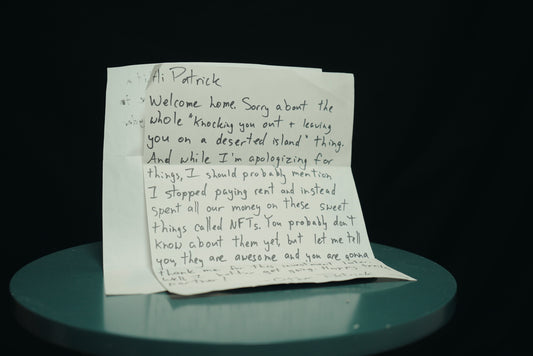 Hi Patrick
Welcome home. Sorry about the
whole "knocking you out + leaving
you on a deserted island" thing.
And while I'm apologizing for
things, I should probably mention
I stopped paying rent and instead
spent all our money on these sweet
things called NFTs. You probably don't
know about them yet, but let me tell
you they are awesome and you are gonna
thank me for this investment later.
get going. Happy